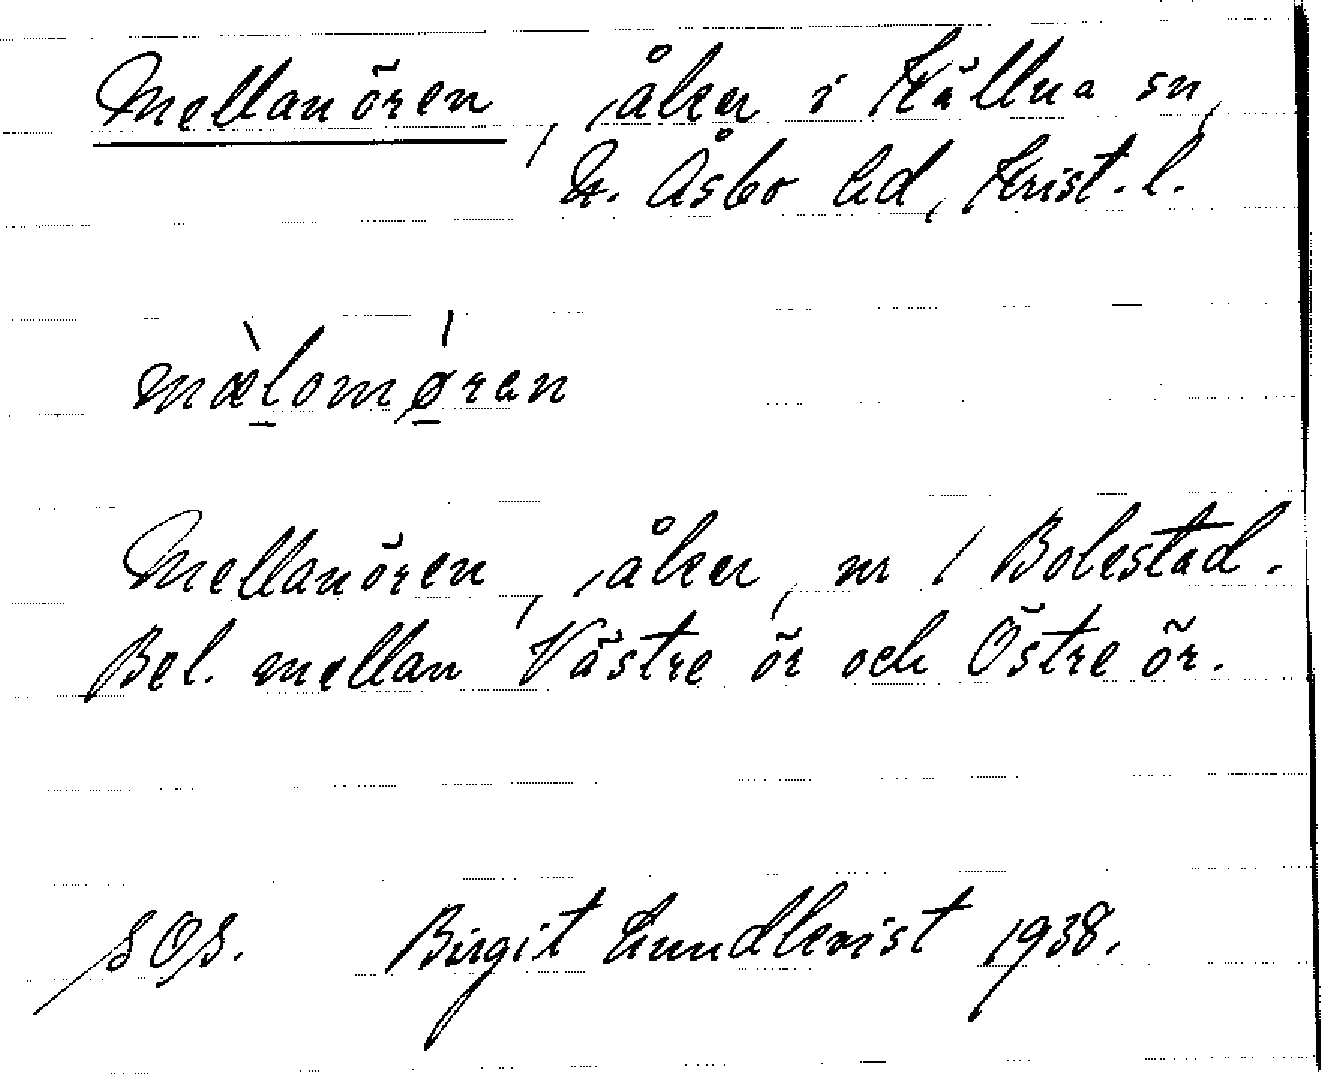 Mellanören, åker i Källna sn,
N. Åsbo hd, Krist. l.
mælomøran
Mellanören, åker, nr 1 Bolestad.
Bel. mellan Västre ör och Östre ör.
SOS. Birgit Lundkvist 1938.